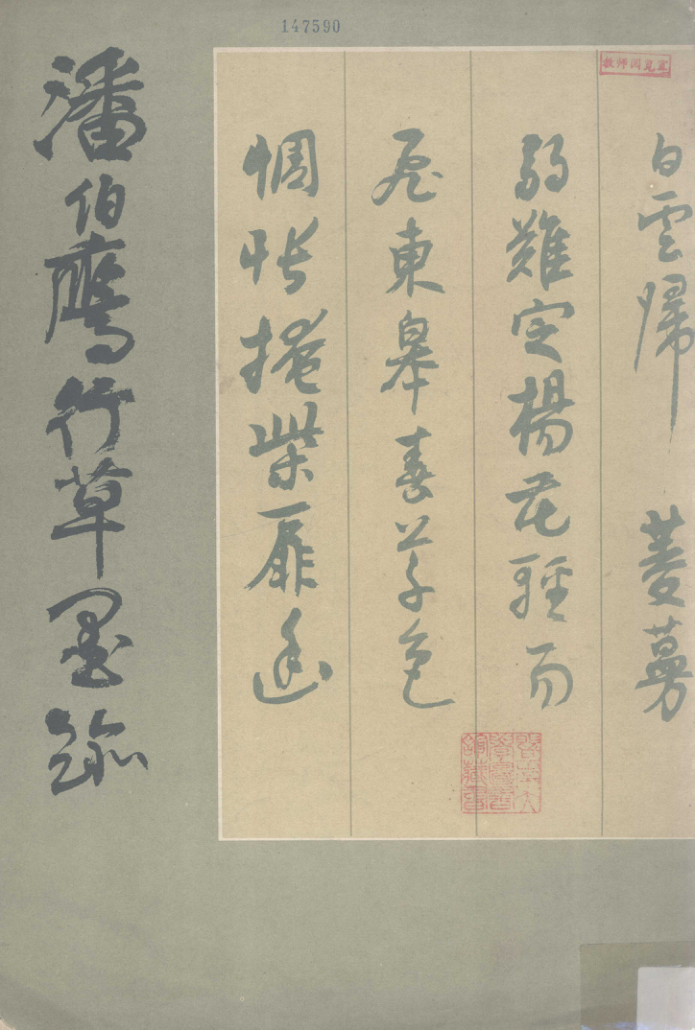 147590
教师阅览室
白雲歸 菱蔓
弱難定楊花輕易
飛東皋春草色
惆悵掩柴扉
潘伯鷹行草墨跡